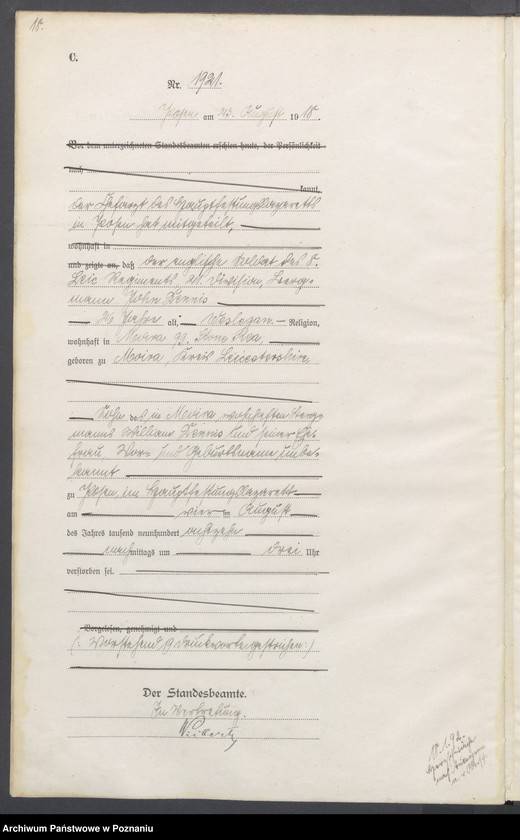 18.
C.
Nr. 1921.
Posen am 23. August 1918.
Vor dem unterzeichneten Standesbeamten erschien heute, der Persönlichkeit
nach
kannt,
der Chefarzt des Hauptfestungslazaretts
in Posen hat mitgeteilt,
wohnhaft in
und zeigte an, daß der englische Soldat des
Leic Regiments, Division, Berg-
mann John Dennis
26 Jahre alt, Weslegan Religion,
wohnhaft in Moira, 99. Stony
geboren zu Moira, Kreis Leicestershire
Sohn des in Moira, wohnhaften Berg-
manns William Dennis und seiner Ehe-
frau, Vor- und Geburtsname unbe-
kannt
zu Posen im Hauptfestungslazarett
am vier ten August
des Jahres tausend neunhundert achtzehn
nachmittags um drei Uhr
verstorben sei.
Vorgelesen, genehmigt und
(: Vorstehend 19 Druckworte gestrichen :)
Der Standesbeamte.
In Vertretung.
Archiwum Państwowe w Poznaniu